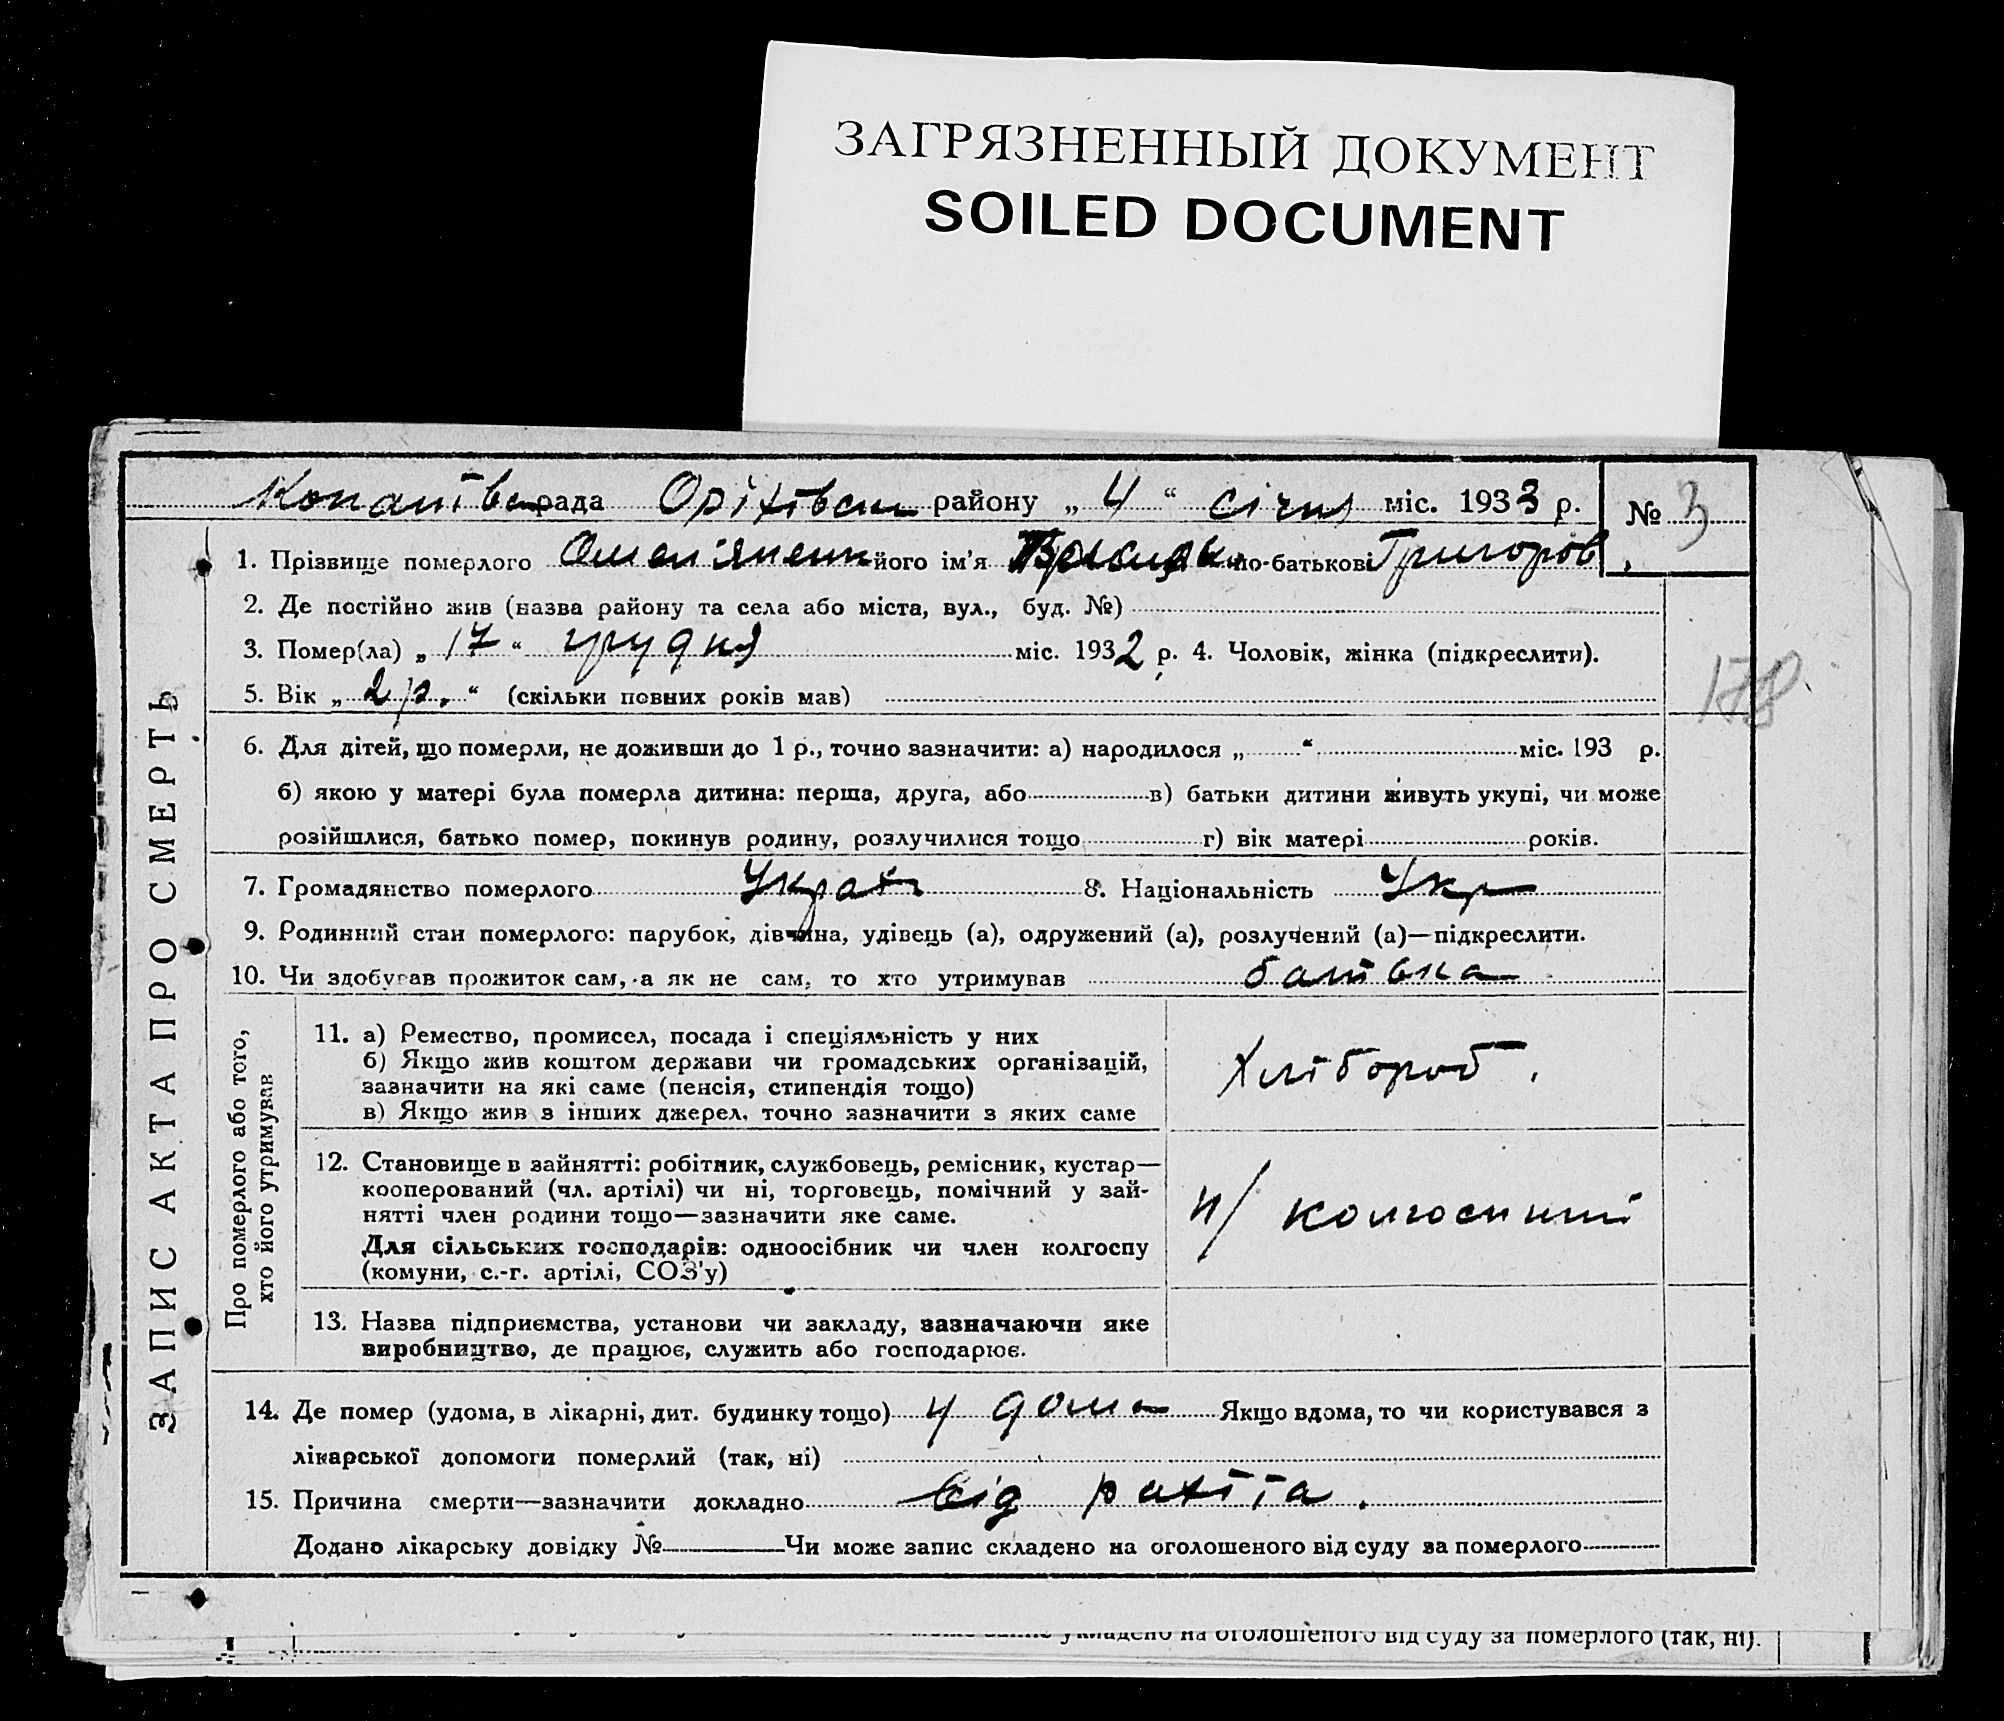 ЗАГРЯЗНЕННЫЙ ДОКУМЕНТ
SOILED DOCUMENT
Копанівс рада Оріхівськ району „ 4 “ січня міс. 1933 р. № 3
1. Прізвище померлого Омеляненк його ім'я по-батькові Григоров
2. Де постійно жив (назва району та села або міста, вул., буд. №)
3. Помер(ла) „ 17 “ грудня міс. 1932 р. 4. Чоловік, жінка (підкреслити).
178
5. Вік „ 2 р. “ (скільки повних років мав)
6. Для дітей, що померли, не доживши до 1 р., точно зазначити: а) народилося „ “ міс. 193 р.
б) якою у матері була померла дитина: перша, друга, або в) батьки дитини живуть укупі, чи може
розійшлися, батько помер, покинув родину, розлучилися тощо г) вік матері років.
7. Громадянство померлого 8. Національність Укр
9. Родинний стан померлого: парубок, дівчина, удівець (а), одружений (а), розлучений (а)—підкреслити.
10. Чи здобував прожиток сам, а як не сам, то хто утримував батька
ЗАПИС АКТА ПРО СМЕРТЬ
Про померлого або того,
хто його утримував
11. а) Ремество, промисел, посада і спеціяльність у них
б) Якщо жив коштом держави чи громадських організацій,
зазначити на які саме (пенсія, стипендія тощо)
в) Якщо жив з інших джерел, точно зазначити з яких саме
Хлібороб.
12. Становище в зайнятті: робітник, службовець, ремісник, кустар—
кооперований (чл. артілі) чи ні, торговець, помічний у зай-
нятті член родини тощо—зазначити яке саме.
Для сільських господарів: одноосібник чи член колгоспу
(комуни, с.-г. артілі, СОЗ'у)
ч/ колгоспний
13. Назва підприємства, установи чи закладу, зазначаючи яке
виробництво, де працює, служить або господарює.
14. Де помер (удома, в лікарні, дит. будинку тощо) у дома Якщо вдома, то чи користувався з
лікарської допомоги померлий (так, ні)
15. Причина смерти—зазначити докладно від рахіта.
Додано лікарську довідку № Чи може запис складено на оголошеного від суду за померлого
може запис укладено на оголошеного від суду за померлого (так, ні).